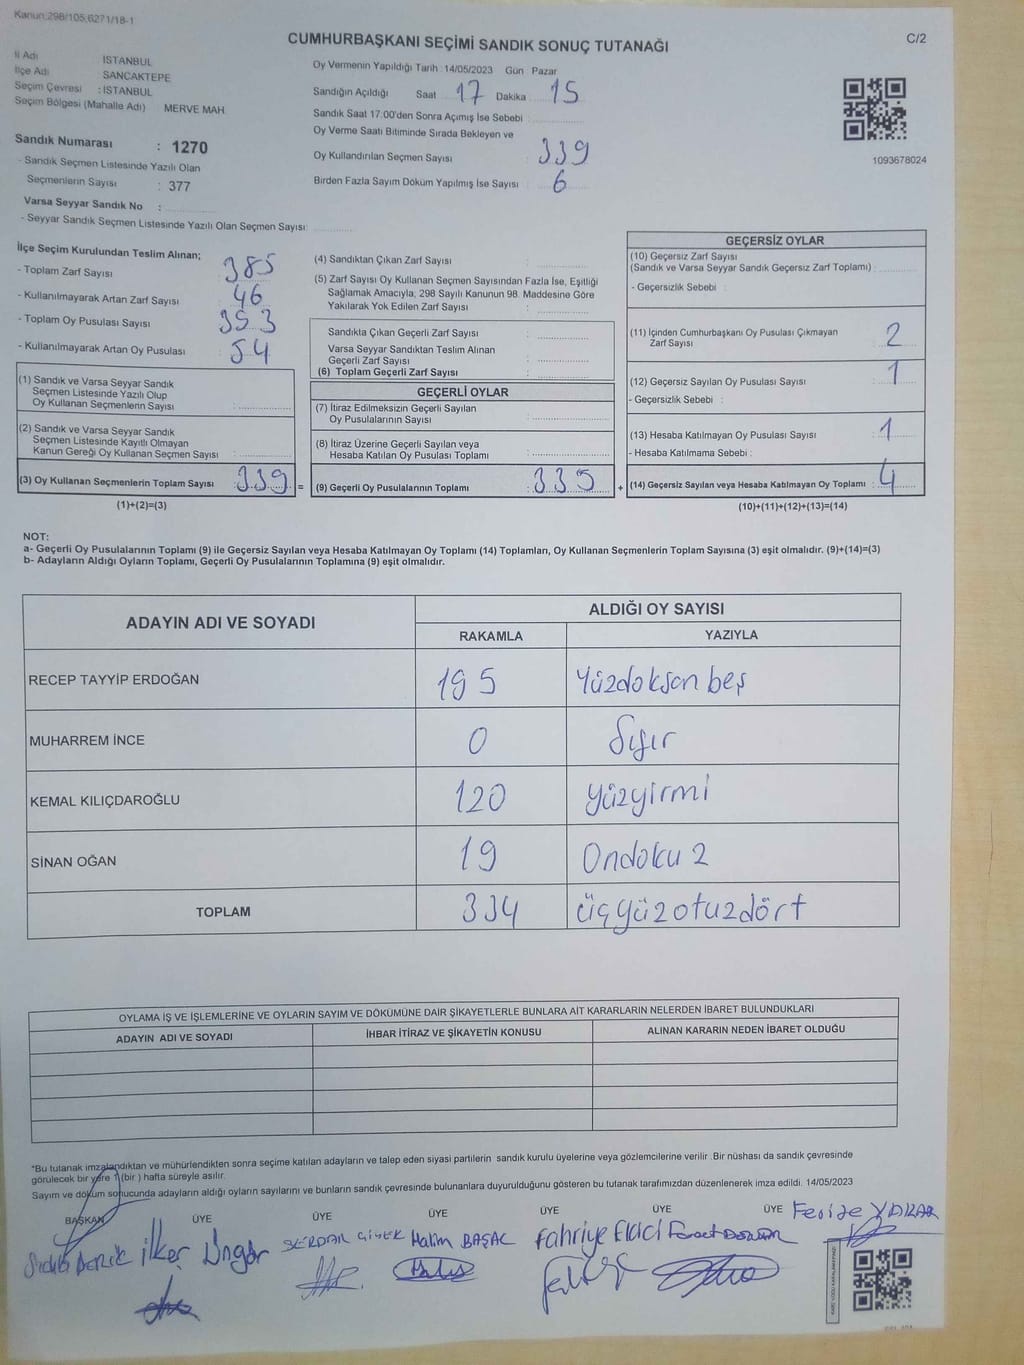 Kanun:298/105,6271/18-1
CUMHURBAŞKANI SEÇİMİ SANDIK SONUÇ TUTANAĞI
C/2
İl Adı : İSTANBUL
İlçe Adı : SANCAKTEPE
Seçim Çevresi : İSTANBUL
Seçim Bölgesi (Mahalle Adı) MERVE MAH
Sandık Numarası : 1270
- Sandık Seçmen Listesinde Yazılı Olan
Seçmenlerin Sayısı : 377
Varsa Seyyar Sandık No :
- Seyyar Sandık Seçmen Listesinde Yazılı Olan Seçmen Sayısı:
Oy Vermenin Yapıldığı Tarih :14/05/2023 Gün Pazar
Sandığın Açıldığı Saat 17 Dakika 15
Sandık Saat 17:00'den Sonra Açımış İse Sebebi :
Oy Verme Saati Bitiminde Sırada Bekleyen ve
Oy Kullandırılan Seçmen Sayısı : 339
Birden Fazla Sayım Döküm Yapılmış İse Sayısı : 6
1093678024
İlçe Seçim Kurulundan Teslim Alınan;
- Toplam Zarf Sayısı 385
- Kullanılmayarak Artan Zarf Sayısı 46
- Toplam Oy Pusulası Sayısı 393
- Kullanılmayarak Artan Oy Pusulası 54
(1) Sandık ve Varsa Seyyar Sandık
Seçmen Listesinde Yazılı Olup
Oy Kullanan Seçmenlerin Sayısı :
(2) Sandık ve Varsa Seyyar Sandık
Seçmen Listesinde Kayıtlı Olmayan
Kanun Gereği Oy Kullanan Seçmen Sayısı :
(3) Oy Kullanan Seçmenlerin Toplam Sayısı : 339 =
(1)+(2)=(3)
(4) Sandıktan Çıkan Zarf Sayısı :
(5) Zarf Sayısı Oy Kullanan Seçmen Sayısından Fazla İse, Eşitliği
Sağlamak Amacıyla; 298 Sayılı Kanunun 98. Maddesine Göre
Yakılarak Yok Edilen Zarf Sayısı :
Sandıkta Çıkan Geçerli Zarf Sayısı :
Varsa Seyyar Sandıktan Teslim Alınan
Geçerli Zarf Sayısı :
(6) Toplam Geçerli Zarf Sayısı :
GEÇERLİ OYLAR
(7) İtiraz Edilmeksizin Geçerli Sayılan
Oy Pusulalarının Sayısı :
(8) İtiraz Üzerine Geçerli Sayılan veya
Hesaba Katılan Oy Pusulası Toplamı :
(9) Geçerli Oy Pusulalarının Toplamı : 335 +
GEÇERSİZ OYLAR
(10) Geçersiz Zarf Sayısı
(Sandık ve Varsa Seyyar Sandık Geçersiz Zarf Toplamı) :
- Geçersizlik Sebebi :
(11) İçinden Cumhurbaşkanı Oy Pusulası Çıkmayan
Zarf Sayısı : 2
(12) Geçersiz Sayılan Oy Pusulası Sayısı : 1
- Geçersizlik Sebebi :
(13) Hesaba Katılmayan Oy Pusulası Sayısı : 1
- Hesaba Katılmama Sebebi :
(14) Geçersiz Sayılan veya Hesaba Katılmayan Oy Toplamı : 4
(10)+(11)+(12)+(13)=(14)
NOT:
a- Geçerli Oy Pusulalarının Toplamı (9) ile Geçersiz Sayılan veya Hesaba Katılmayan Oy Toplamı (14) Toplamları, Oy Kullanan Seçmenlerin Toplam Sayısına (3) eşit olmalıdır. (9)+(14)=(3)
b- Adayların Aldığı Oyların Toplamı, Geçerli Oy Pusulalarının Toplamına (9) eşit olmalıdır.
ADAYIN ADI VE SOYADI ALDIĞI OY SAYISI
RAKAMLA YAZIYLA
RECEP TAYYİP ERDOĞAN 195 Yüzdoksan beş
MUHARREM İNCE 0 Sıfır
KEMAL KILIÇDAROĞLU 120 Yüzyirmi
SİNAN OĞAN 19 Ondoku2
TOPLAM 334 Üçyü2otuzdört
OYLAMA İŞ VE İŞLEMLERİNE VE OYLARIN SAYIM VE DÖKÜMÜNE DAİR ŞİKAYETLERLE BUNLARA AİT KARARLARIN NELERDEN İBARET BULUNDUKLARI
ADAYIN ADI VE SOYADI İHBAR İTİRAZ VE ŞİKAYETİN KONUSU ALINAN KARARIN NEDEN İBARET OLDUĞU
*Bu tutanak imzalandıktan ve mühürlendikten sonra seçime katılan adayların ve talep eden siyasi partilerin sandık kurulu üyelerine veya gözlemcilerine verilir .Bir nüshası da sandık çevresinde
görülecek bir yere 1 (bir ) hafta süreyle asılır.
Sayım ve döküm sonucunda adayların aldığı oyların sayılarını ve bunların sandık çevresinde bulunanlara duyurulduğunu gösteren bu tutanak tarafımızdan düzenlenerek imza edildi. 14/05/2023
BAŞKAN ÜYE ÜYE ÜYE ÜYE ÜYE ÜYE
İlker Üngör
SERDAR ÇİÇEK
Halim BAŞAÇ
Fahriye Ekici